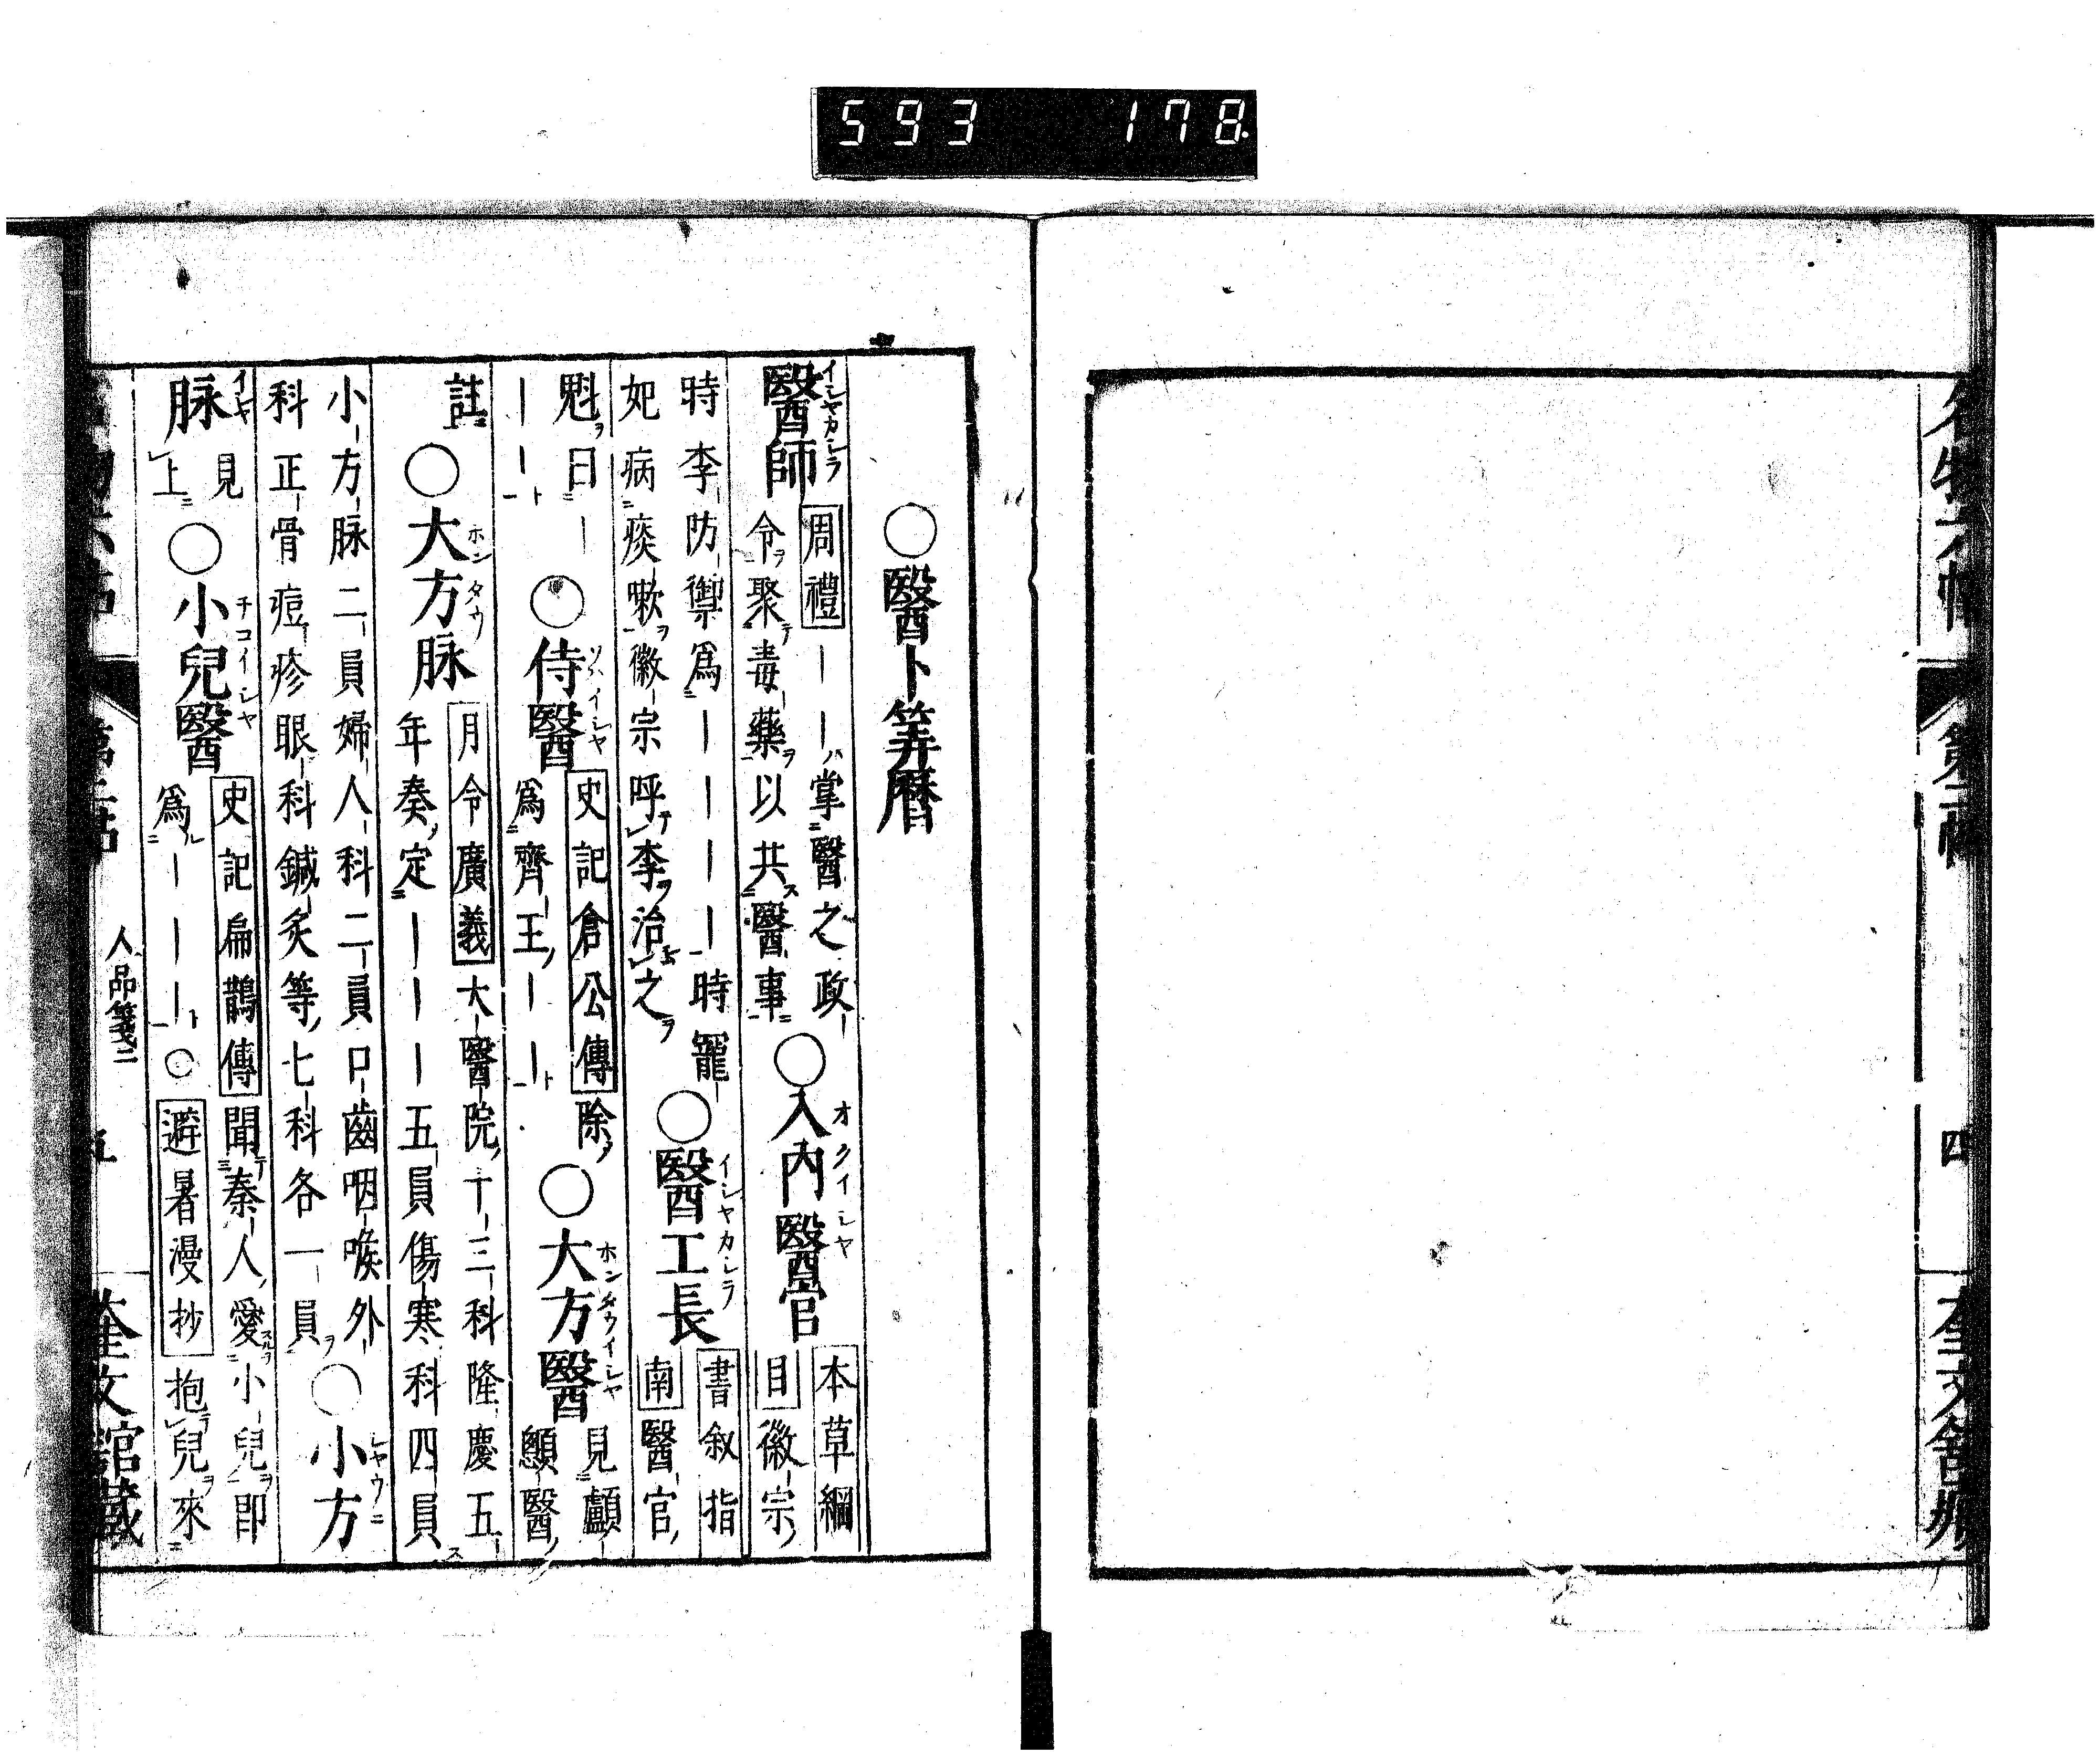 593 178
名物六帖 第二帖 四
○醫卜筭曆
醫師 イシヤカシラ
周禮――ハ掌醫之政
令聚毒藥以共醫事
○入内醫官 オクイシヤ
本草綱
目徽宗
時李防禦爲――――時寵
妃病痰嗽徽宗呼李治之
○醫工長 イシヤカシラ
書叙指
南醫官
魁曰―
――
○侍醫 ソハイシヤ
史記倉公傳除
爲齊王――
○大方醫 ホンダウイシヤ
見顱
顖醫
註
○大方脉 ホンタウ
月令廣義大醫院十三科隆慶五
年奏定―――五員傷寒科四員
小方脉二員婦人科二員口齒咽喉外
科正骨痘疹眼科鍼炙等七科各一員
○小方 シヤウニ
脉 イシヤ
見
上
○小兒醫 チコイシヤ
史記扁鵲傳聞秦人愛小兒卽
爲―――○避暑漫抄抱兒來
人品箋二 五 奎文館藏